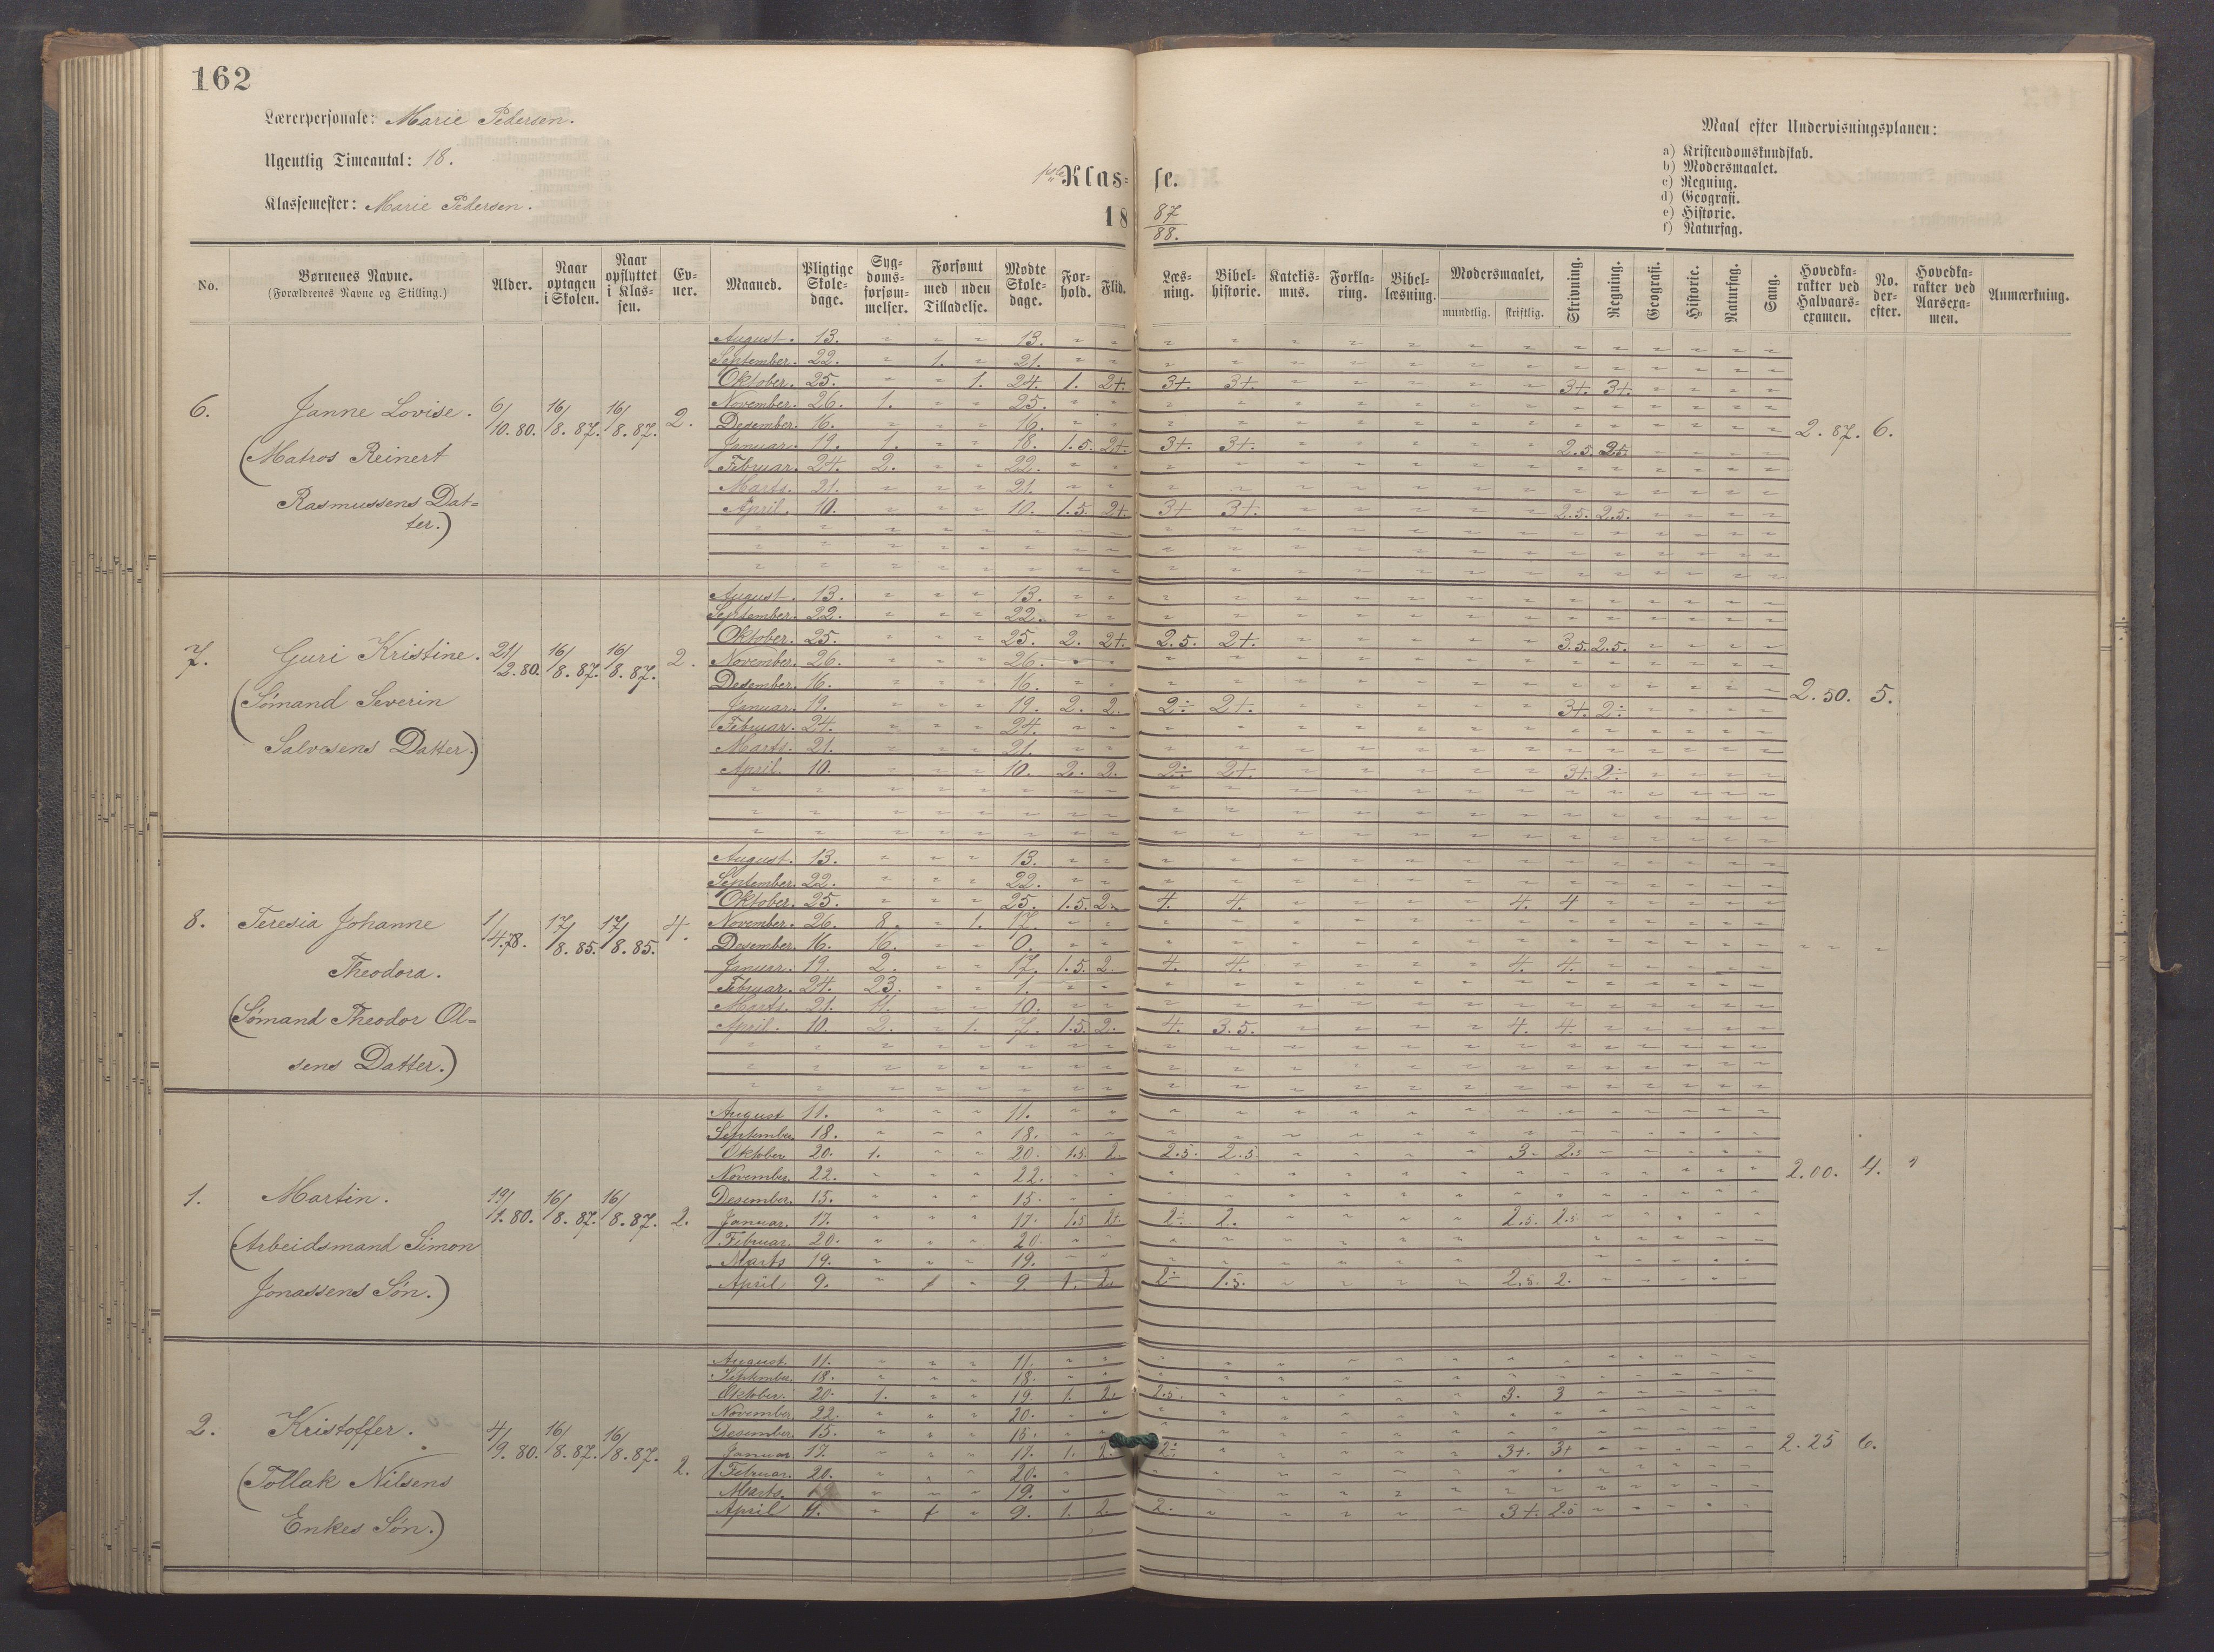 162
Lærerpersonale: Marie Pedersen.
Ugentlig Timeantal: 18.
Klassemester: Marie Pedersen.
1ste Klasse.
18 87/88.
Maal efter Undervisningsplanen:
a) Kristendomskundskab.
b) Modersmaalet.
c) Regning.
d) Geografi.
e) Historie.
f) Naturfag.
No. | Børnenes Navne. (Forældrenes Navne og Stilling.) | Alder. | Naar optagen i Skolen. | Naar opflyttet i Klassen. | Evner. | Maaned. | Pligtige Skoledage. | Sygdomsforsømmelser. | Forsømt med uden Tilladelse. | Mødte Skoledage. | Forhold. | Flid. | Læsning. | Bibelhistorie. | Katekismus. | Forklaring. | Bibellæsning. | Modersmaalet, mundtlig. skriftlig. | Skrivning. | Regning. | Geografi. | Historie. | Naturfag. | Sang. | Hovedkarakter ved Halvaarsexamen. | No. derefter. | Hovedkarakter ved Aarsexamen. | Anmærkning.
6. Janne Lovise. 6/10.80. 16/8.87. 16/8.87. 2. 2.87. 6.
(Matros Reinert
Rasmussens Dat=
ter.)
August. 13. 13.
September. 22. 1. 21.
Oktober. 25. 1. 24. 1. 2+. 3+. 3+. 3+. 3+.
November. 26. 1. 25.
Desember. 16. 16.
Januar. 19. 1. 18. 1.5. 2+. 3+. 3+. 2.5.
Februar. 24. 2. 22.
Marts. 21. 21.
April. 10. 10. 1.5. 2+. 3+ 3+. 2.5. 2.5.
7. Guri Kristine. 21/12.80. 16/8.87. 16/8.87. 2. 2.50. 5.
(Sømand Severin
Salvesens Datter.)
August. 13. 13.
September. 22. 22.
Oktober. 25. 25. 2. 2+. 2.5. 2+. 3.5. 2.5.
November. 26. 26.
Desember. 16. 16.
Januar. 19. 19. 2. 2. 2÷ 2+. 3+. 2÷
Februar. 24. 24.
Marts. 21. 21.
April. 10. 10. 2. 2. 2÷ 2+. 3+. 2÷
8. Teresia Johanne 1/4.78. 17/8.85. 17/8.85. 4.
Theodora.
(Sømand Theodor Ol=
sens Datter.)
August. 13. 13.
September. 22. 22.
Oktober. 25. 25. 1.5. 2. 4. 4. 4. 4
November. 26. 8. 1. 17.
Desember. 16. 16. 0.
Januar. 19. 2. 17. 1.5. 2. 4. 4. 4. 4.
Februar. 24. 23. 1.
Marts. 21. 11. 10.
April. 10. 2. 1. 7. 1.5. 2. 4. 3.5. 4. 4.
1. Martin. 19/11.80. 16/8.87. 16/8.87. 2. 2.00. 4.
(Arbeidsmand Simon
Jonassens Søn.)
August 11. 11.
September. 18. 18.
Oktober 20. 1. 20. 1.5. 2. 2.5. 2.5 3. 2.5
November. 22. 22.
Desember. 15. 15.
Januar. 17. 17. 1.5 2+. 2÷. 2. 2.5. 2.5
Februar. 20. 20.
Marts 19. 19.
April 9. 9. 1. 2. 2÷ 1.5. 2.5. 2.
2. Kristoffer. 4/9.80. 16/8.87. 16/8.87. 2. 2.25 6.
(Tollak Nilsens
Enkes Søn.)
August. 11. 11.
September. 18. 18.
Oktober. 20. 1. 19. 1. 2. 2.5. 3. 3
November 22. 20.
Desember. 15. 15.
Januar 17. 17. 1. 2. 2÷ 3+. 3+
Februar. 20. 20.
Marts. 19.
April 9. 9. 1. 2. 2. 3+. 2.5